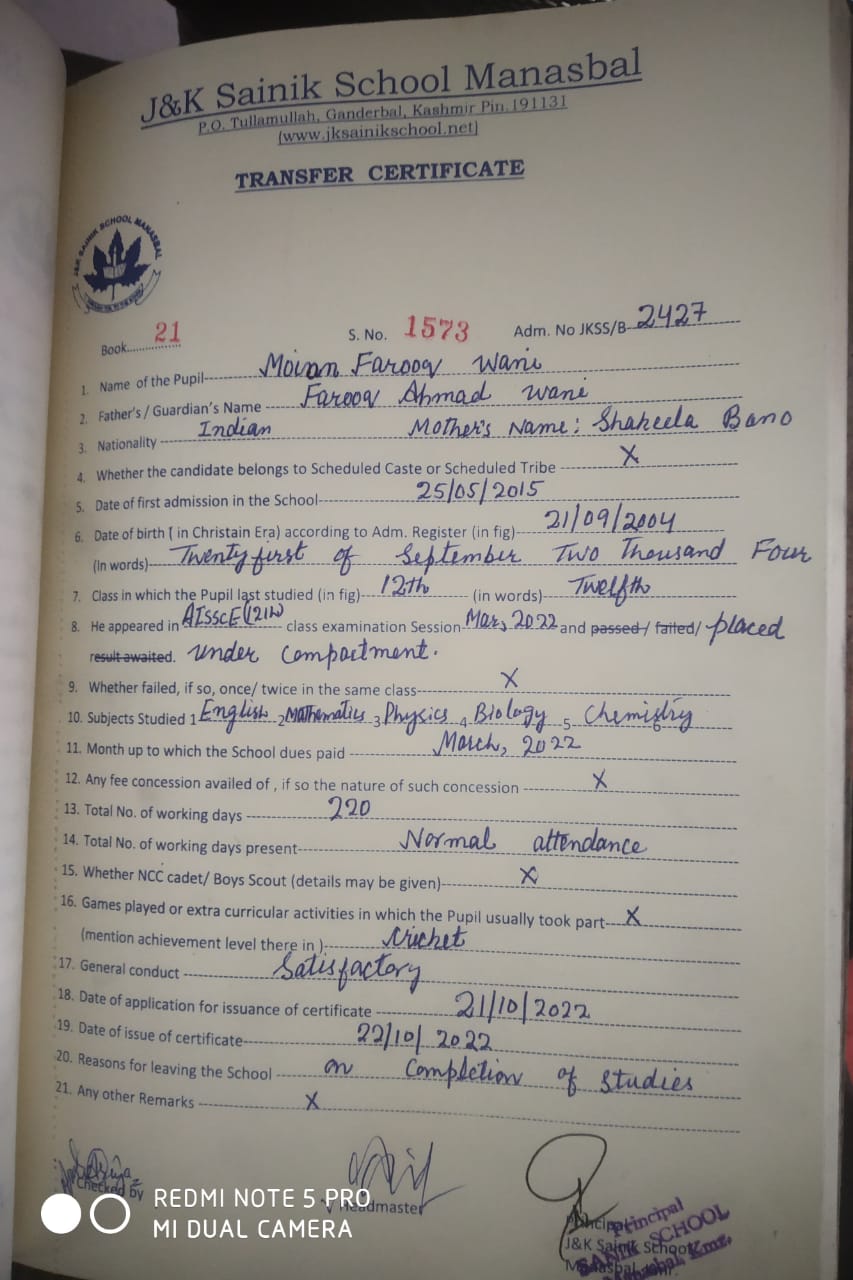 J&K Sainik School Manasbal
P.O. Tullamullah, Ganderbal, Kashmir Pin.191131
(www.jksainikschool.net)
TRANSFER CERTIFICATE
J&K SAINIK SCHOOL MANASBAL
Book 21 S. No. 1573 Adm. No JKSS/B- 2427
1. Name of the Pupil Moiran Farooq Wani
2. Father's / Guardian's Name Farooq Ahmad Wani
3. Nationality Indian Mother's Name: Shakeela Bano
4. Whether the candidate belongs to Scheduled Caste or Scheduled Tribe X
5. Date of first admission in the School 25/05/2015
6. Date of birth ( in Christain Era) according to Adm. Register (in fig) 21/09/2004
(In words) Twenty first of September Two Thousand Four
7. Class in which the Pupil last studied (in fig) 12th (in words) Twelfth
8. He appeared in AISSCE (12th) class examination Session Mar, 2022 and passed / failed/ placed
result awaited. under compactment.
9. Whether failed, if so, once/ twice in the same class X
10. Subjects Studied 1 English 2 Mathematics 3 Physics 4 Biology 5 Chemistry
11. Month up to which the School dues paid March, 2022
12. Any fee concession availed of , if so the nature of such concession X
13. Total No. of working days 220
14. Total No. of working days present Normal attendance
15. Whether NCC cadet/ Boys Scout (details may be given) X
16. Games played or extra curricular activities in which the Pupil usually took part X
(mention achievement level there in ) Cricket
17. General conduct Satisfactory
18. Date of application for issuance of certificate 21/10/2022
19. Date of issue of certificate 22/10/2022
20. Reasons for leaving the School on Completion of Studies
21. Any other Remarks X
Checked by
Headmaster
Principal
J&K Sainik School
Manasbal
Principal
SANIK SCHOOL
Manasbal Kmr.
REDMI NOTE 5 PRO
MI DUAL CAMERA